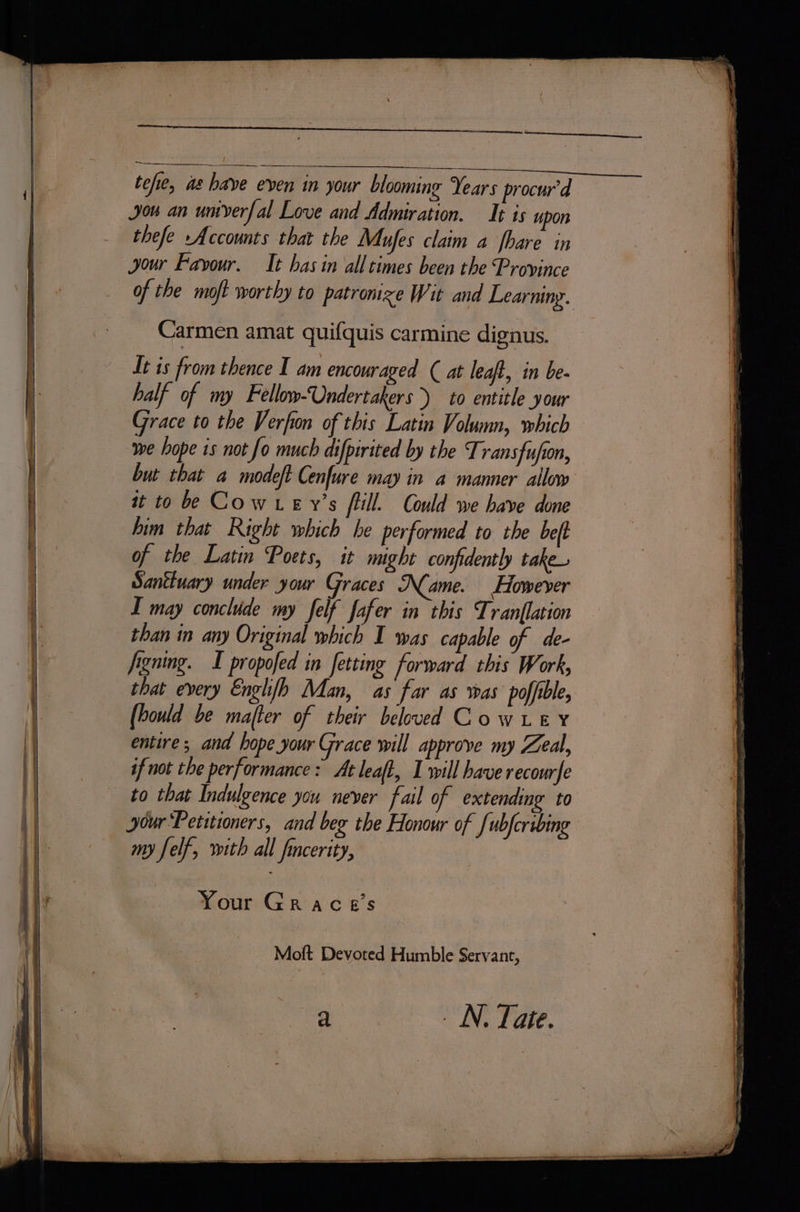 teſie, as have even in your blooming Years procur'd
you an univerſal Love and Admiration. It is upon
theſe Accounts that the Muſes claim a ſhare in
your Favour. It has in all times been the Province
of the moſt worthy to patronize Wit and Learning.
Carmen amat quiſquis carmine dignus.
It is from thence I am encouraged ( at leaſt, in be-
half of my Fellow-Undertakers ) to entitle your
Grace to the Verſion of this Latin Volumn, which
we hope is not ſo much diſpirited by the Transfuſion,
but that a modeſt Cenſure may in a manner allow
it to be COWLEY's ſtill. Could we have done
him that Right which he performed to the beſt
of the Latin Poets, it might confidently take
Sanctuary under your Graces Name. However
I may conclude my ſelf ſafer in this Tranſlation
than in any Original which I was capable of de-
ſigning. I propoſed in ſetting forward this Work,
that every Engliſh Man, as far as was poſſible,
ſhould be maſter of their beloved COWLEY
entire; and hope your Grace will approve my Zeal,
if not the performance: At leaſt, I will have recourſe
to that Indulgence you never fail of extending to
your Petitioners, and beg the Honour of ſubſcribing
my ſelf, with all ſincerity,
Your GRACE's
Moſt Devoted Humble Servant,
a N. Tate.